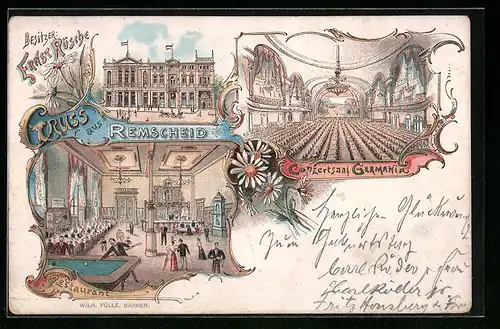 Besitzer
Ernst Rösche
Gruss
aus
Remscheid
Concertsaal Germania
Restaurant
WILH. FÜLLE, BARMEN.
Herzlichen Glückwunsch
Zum Geburtstag
Carl Röder u Frau
Fritz